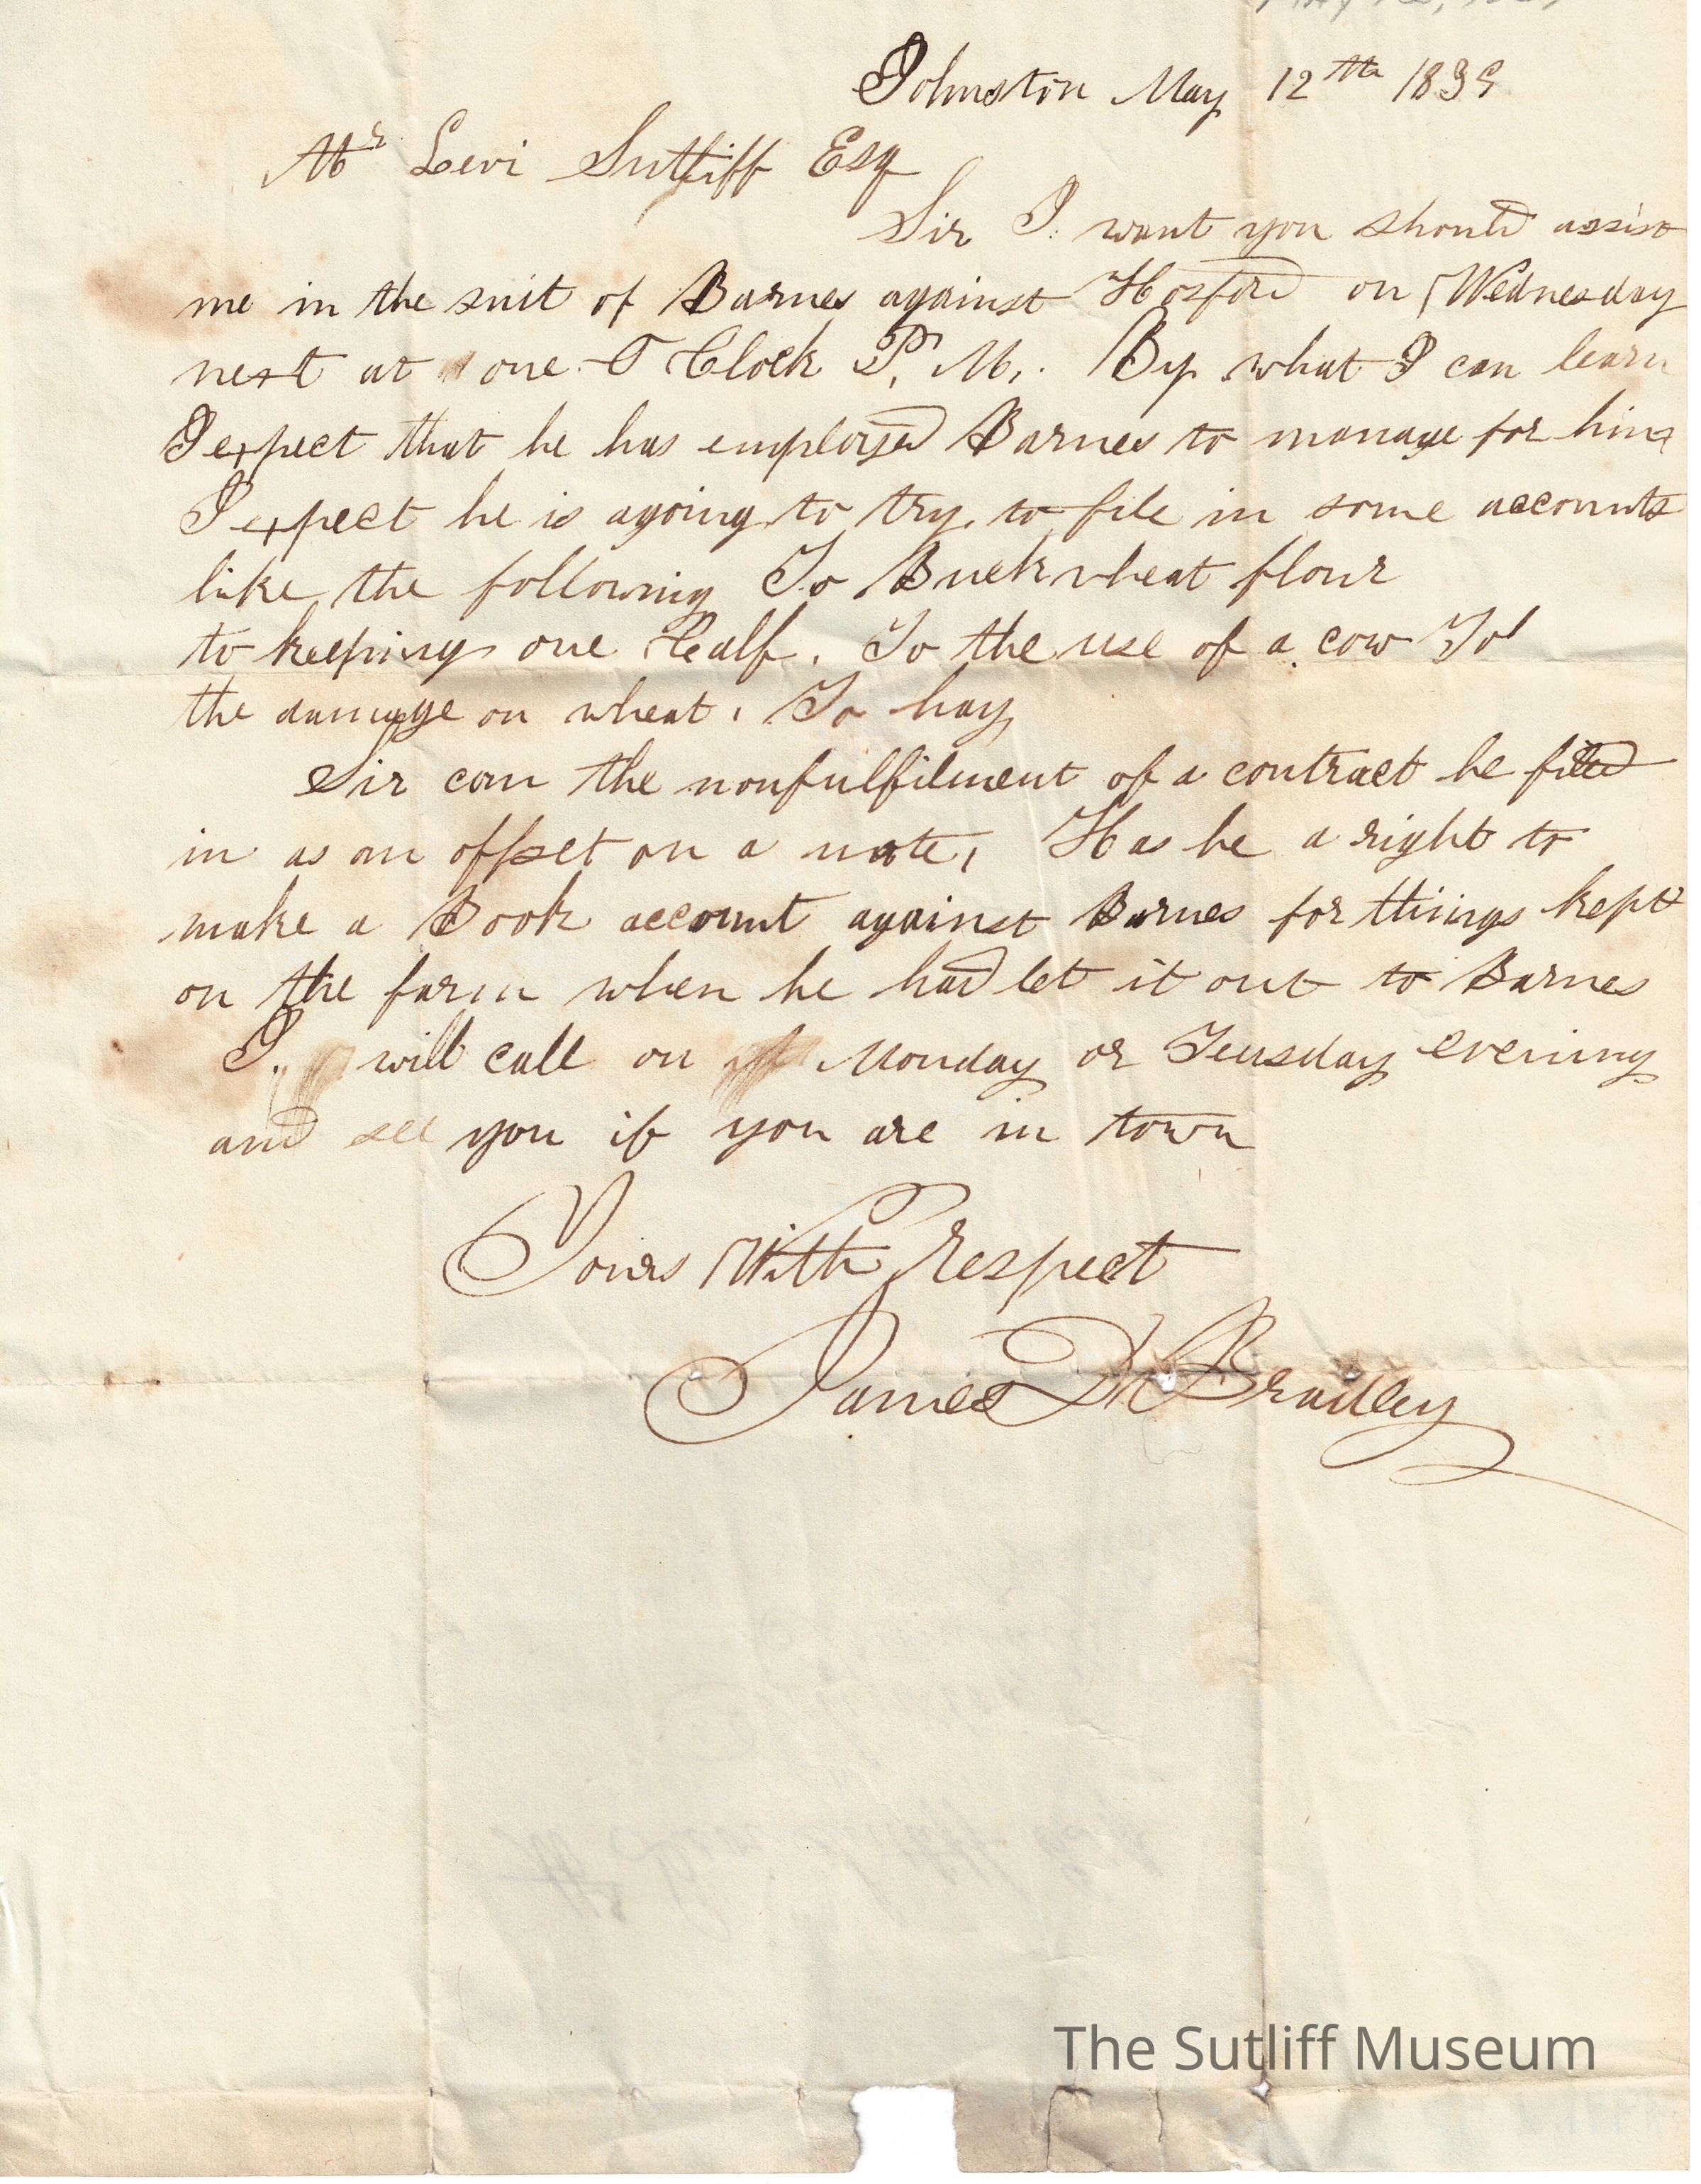 Johnston May 12th 1839
Mr Levi Sutliff Esq
Sir I. want you should assist
me in the suit of Barnes against Hosford on Wednesday
next at one O Clock P, M,. By what I can learn
I expect that he has employed Barnes to manage for him
I expect he is agoing to try to file in some accounts
like the following To Buckwheat flour
to keeping one Calf. To the use of a cow To
the damage on wheat, To hay
Sir can the nonfulfilment of a contract be filed
in as an offset on a note, Has he a right to
make a Book account against Barnes for things kept
on the farm when he had let it out to Barnes
I. will call on Monday or Teusday evening
and see you if you are in town
Yours With Respect
James Bradley
The Sutliff Museum